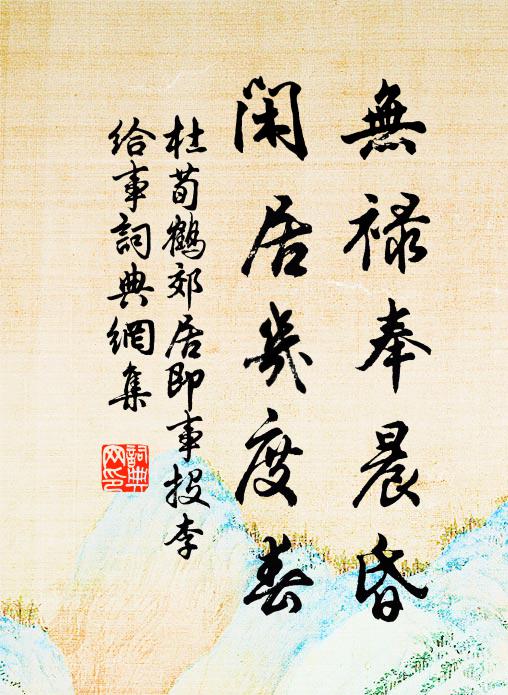 無禄奉晨昏
閑居幾度春
杜荀鶴郊居即事投李
給事詞典網集
詞典
网印